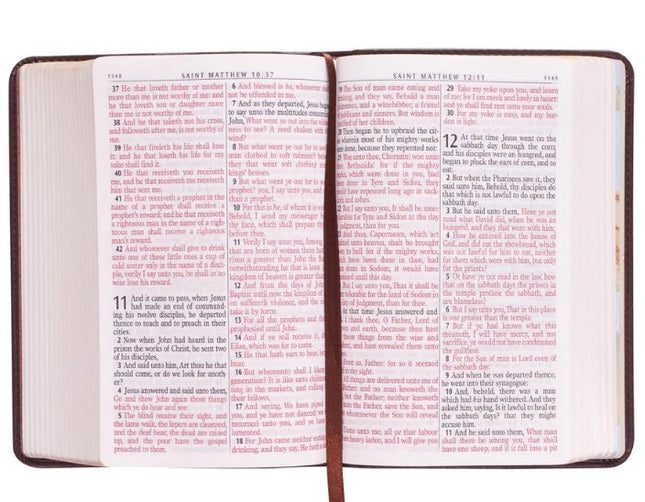 1148
SAINT MATTHEW 10:37
37 He that loveth father or mother
more than me is not worthy of me: and
he that loveth son or daughter more
than me is not worthy of me.
38 And he that taketh not his cross,
and followeth after me, is not worthy of
me.
39 He that findeth his life shall lose
it: and he that loseth his life for my
sake shall find it.
40 He that receiveth you receiveth
me, and he that receiveth me receiveth
him that sent me.
41 He that receiveth a prophet in the
name of a prophet shall receive a
prophet's reward; and he that receiveth
a righteous man in the name of a right-
eous man shall receive a righteous
man's reward.
42 And whosoever shall give to drink
unto one of these little ones a cup of
cold water only in the name of a disci-
ple, verily I say unto you, he shall in no
wise lose his reward.
11 And it came to pass, when Jesus
had made an end of command-
ing his twelve disciples, he departed
thence to teach and to preach in their
cities.
2 Now when John had heard in the
prison the works of Christ, he sent two
of his disciples,
3 And said unto him, Art thou he that
should come, or do we look for anoth-
er?
4 Jesus answered and said unto them,
Go and shew John again those things
which ye do hear and see:
5 The blind receive their sight, and
the lame walk, the lepers are cleansed,
and the deaf hear, the dead are raised
up, and the poor have the gospel
preached to them.
6 And blessed is he, whosoever shall
not be offended in me.
7 And as they departed, Jesus began
to say unto the multitudes concerning
John, What went ye out into the wilder-
ness to see? A reed shaken with the
wind?
8 But what went ye out for to see? A
man clothed in soft raiment? behold,
they that wear soft clothing are in
kings' houses.
9 But what went ye out for to see? A
prophet? yea, I say unto you, and more
than a prophet.
10 For this is he, of whom it is written,
Behold, I send my messenger before
thy face, which shall prepare thy way
before thee.
11 Verily I say unto you, Among them
that are born of women there hath not
risen a greater than John the Baptist:
notwithstanding he that is least in the
kingdom of heaven is greater than he.
12 And from the days of John the
Baptist until now the kingdom of heaven
suffereth violence, and the violent
take it by force.
13 For all the prophets and the law
prophesied until John.
14 And if ye will receive it, this is
Elias, which was for to come.
15 He that hath ears to hear, let him
hear.
16 But whereunto shall I liken this
generation? It is like unto children sit-
ting in the markets, and calling unto
their fellows,
17 And saying, We have piped unto
you, and ye have not danced; we have
mourned unto you, and ye have not
lamented.
18 For John came neither eating nor
drinking, and they say, He hath a devil.
SAINT MATTHEW 12:11
1149
19 The Son of man came eating and
drinking, and they say, Behold a man
gluttonous, and a winebibber, a friend
of publicans and sinners. But wisdom is
justified of her children.
20 Then began he to upbraid the cit-
ies wherein most of his mighty works
were done, because they repented not:
21 Woe unto thee, Chorazin! woe unto
thee, Bethsaida! for if the mighty
works, which were done in you, had
been done in Tyre and Sidon, they
would have repented long ago in sack-
cloth and ashes.
22 But I say unto you, It shall be more
tolerable for Tyre and Sidon at the day
of judgment, than for you.
23 And thou, Capernaum, which art
exalted unto heaven, shalt be brought
down to hell: for if the mighty works,
which have been done in thee, had
been done in Sodom, it would have
remained until this day.
24 But I say unto you, That it shall be
more tolerable for the land of Sodom in
the day of judgment, than for thee.
25 At that time Jesus answered and
said, I thank thee, O Father, Lord of
heaven and earth, because thou hast
hid these things from the wise and
prudent, and hast revealed them unto
babes.
26 Even so, Father: for so it seemed
good in thy sight.
27 All things are delivered unto me of
my Father: and no man knoweth the
Son, but the Father; neither knoweth
any man the Father, save the Son, and
he to whomsoever the Son will reveal
him.
28 Come unto me, all ye that labour
and are heavy laden, and I will give you
29 Take my yoke upon you, and learn
of me; for I am meek and lowly in heart:
and ye shall find rest unto your souls.
30 For my yoke is easy, and my bur-
den is light.
12 At that time Jesus went on the
sabbath day through the corn;
and his disciples were an hungred, and
began to pluck the ears of corn, and to
eat.
2 But when the Pharisees saw it, they
said unto him, Behold, thy disciples do
that which is not lawful to do upon the
sabbath day.
3 But he said unto them, Have ye not
read what David did, when he was an
hungred, and they that were with him;
4 How he entered into the house of
God, and did eat the shewbread, which
was not lawful for him to eat, neither
for them which were with him, but only
for the priests?
5 Or have ye not read in the law, how
that on the sabbath days the priests in
the temple profane the sabbath, and
are blameless?
6 But I say unto you, That in this place
is one greater than the temple.
7 But if ye had known what this
meaneth, I will have mercy, and not
sacrifice, ye would not have condemned
the guiltless.
8 For the Son of man is Lord even of
the sabbath day.
9 And when he was departed thence,
he went into their synagogue:
10 And, behold, there was a man
which had his hand withered. And they
asked him, saying, Is it lawful to heal on
the sabbath days? that they might
accuse him.
11 And he said unto them, What man
shall there be among you, that shall
have one sheep, and if it fall into a pit